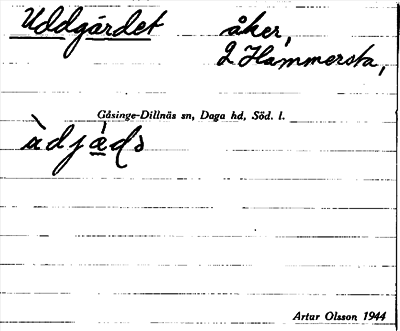 Uddgärdet åker,
L. Hammersta,
Gåsinge-Dillnäs sn, Daga hd, Söd. l.
Artur Olsson 1944